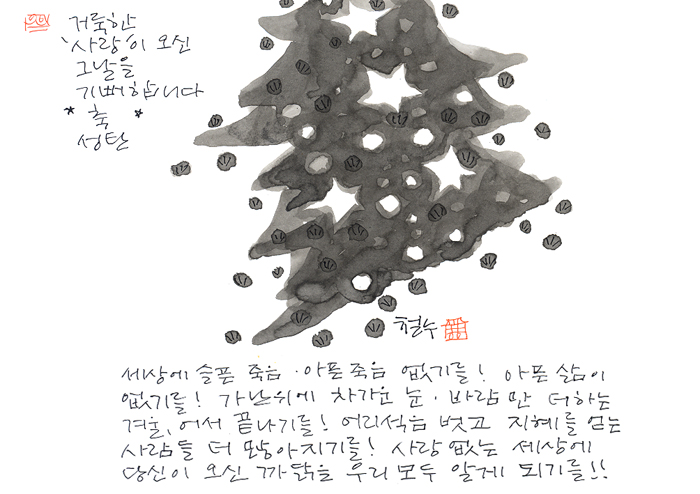 거룩한
'사랑'이 오신
그날을
기뻐합니다
* 축 *
성탄
철수
세상에 슬픈 죽음 · 아픈 죽음 없기를! 아픈 삶이
없기를! 가난위에 차가운 눈 · 바람만 더하는
겨울, 어서 끝나기를! 어리석음 벗고 지혜를 얻는
사람들 더 많아지기를! 사랑 없는 세상에
당신이 오신 까닭을 우리 모두 알게 되기를!!